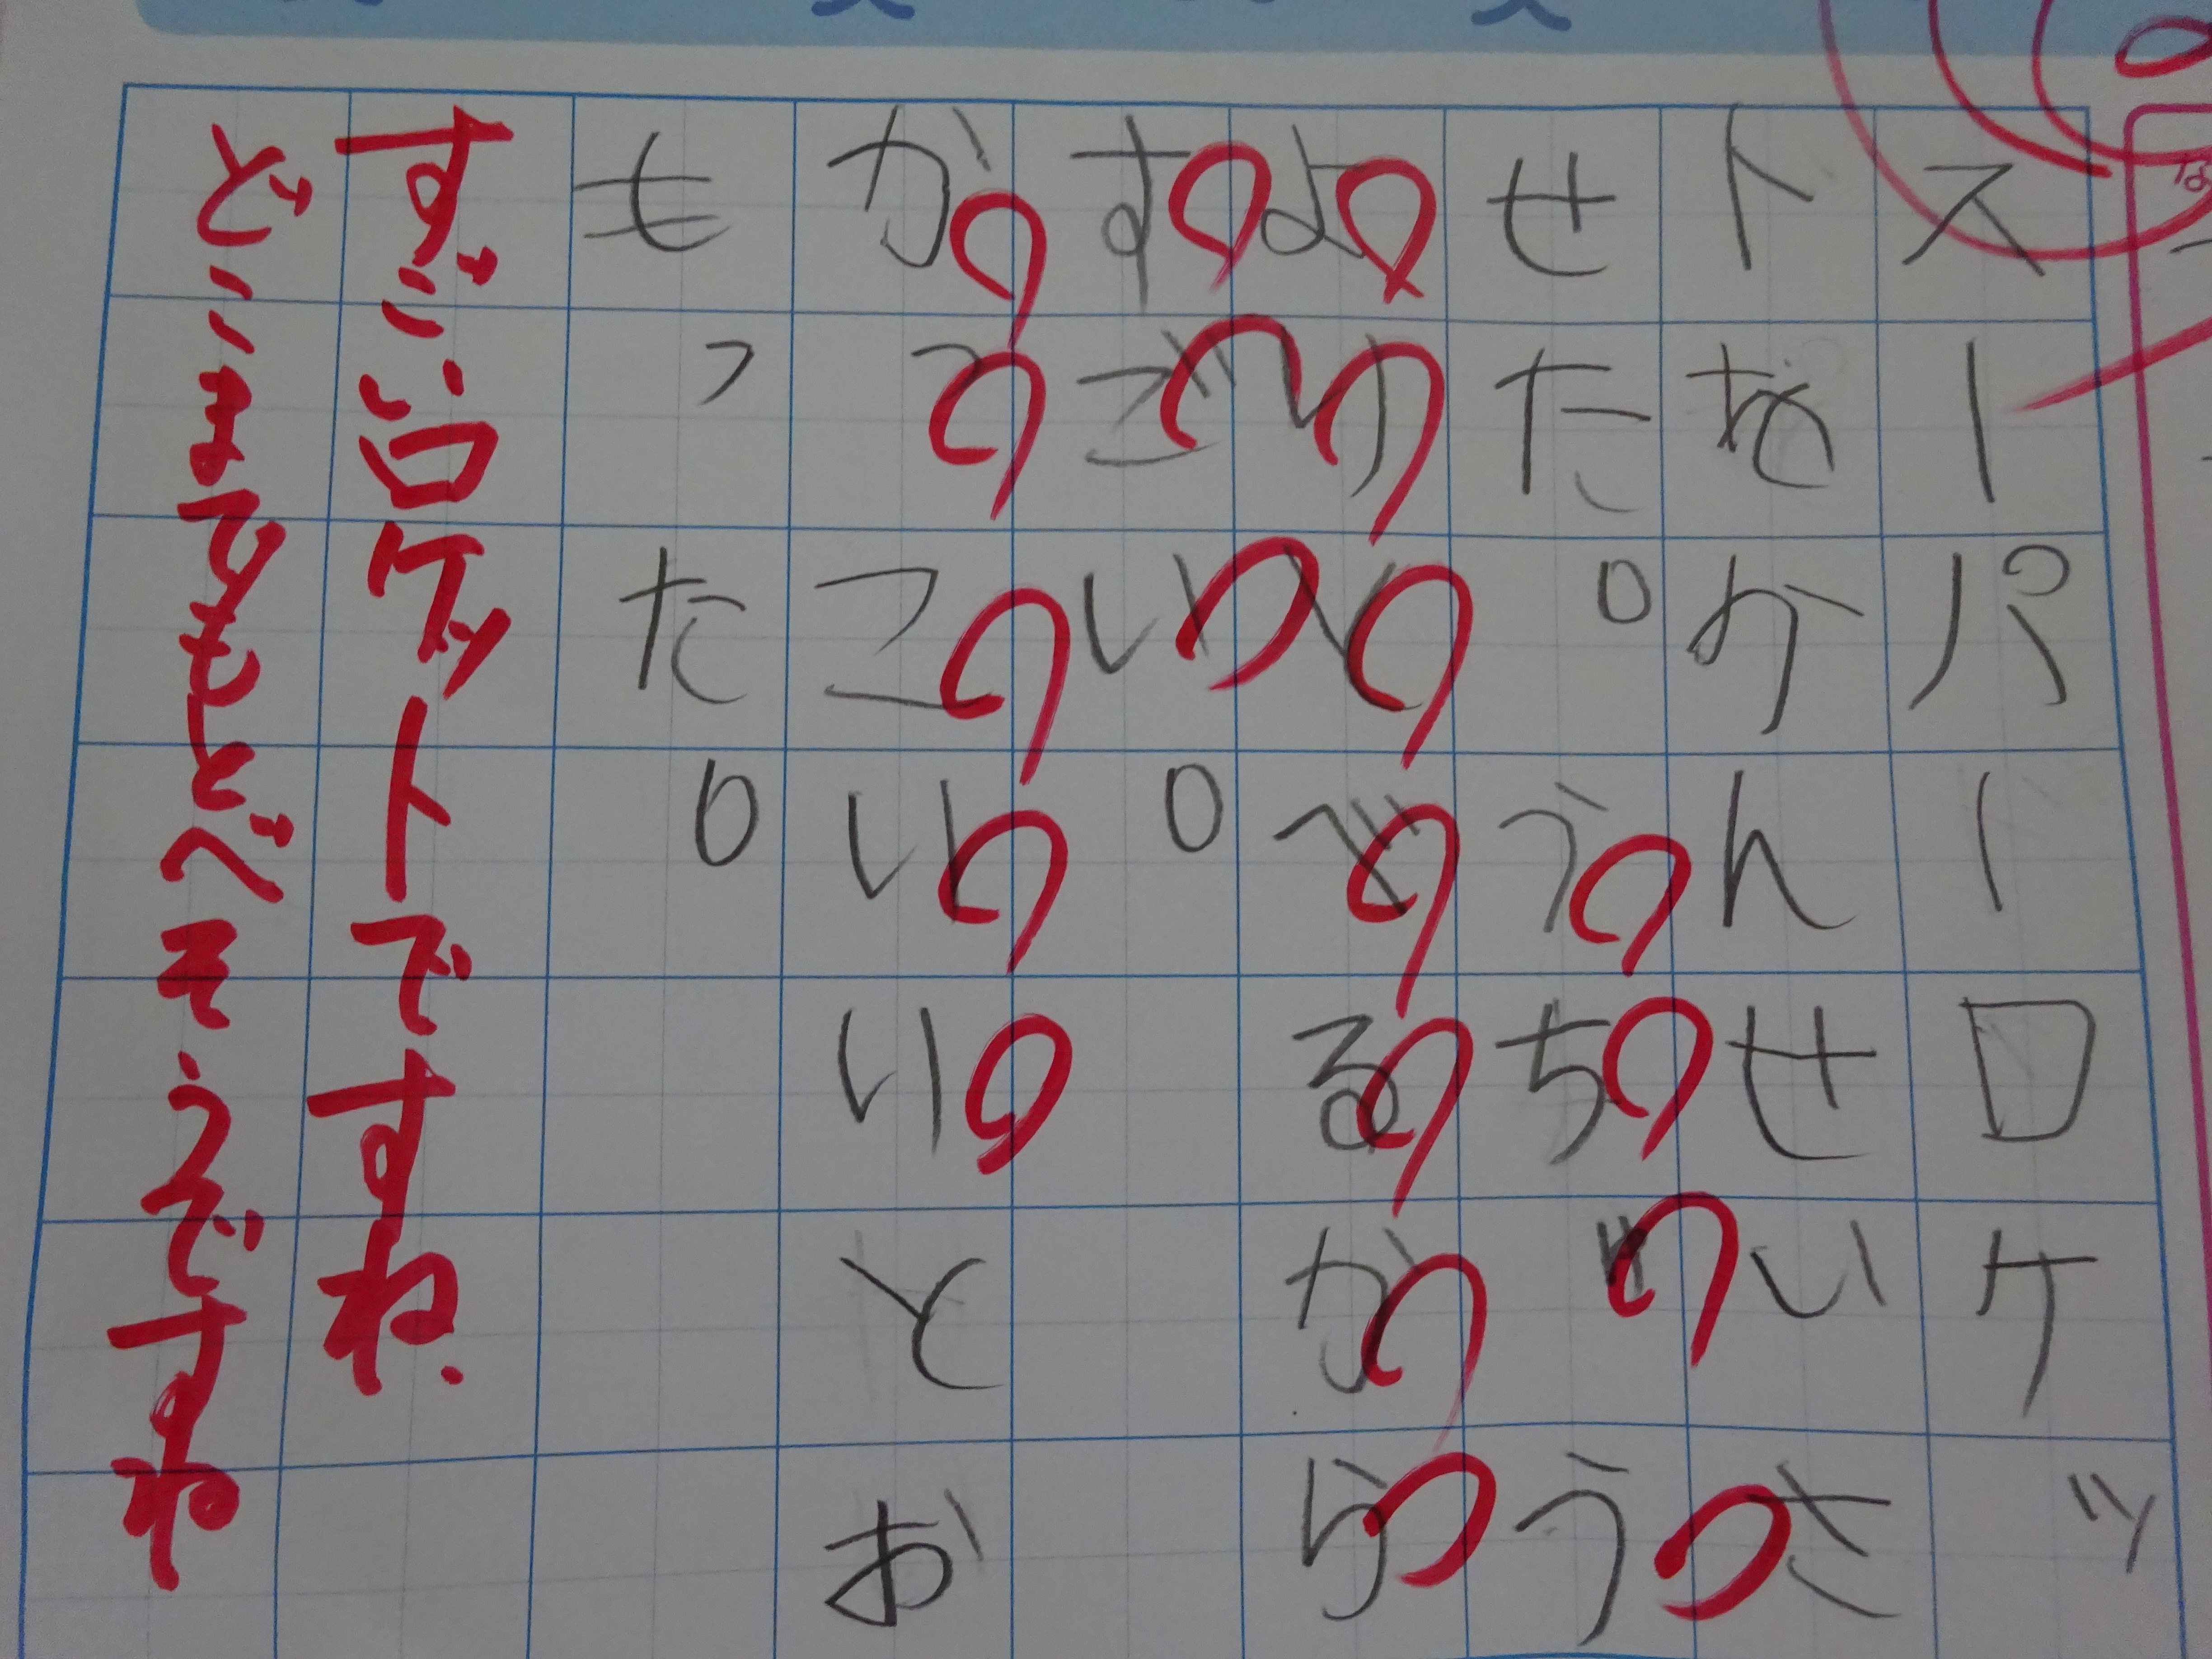 スーパーロケッ
トをかんせいさ
せた。うちゅう
よりとべるから
すごい。
かっこいいとお
もった。
すごいロケットですね.
どこまでもとべそうですね